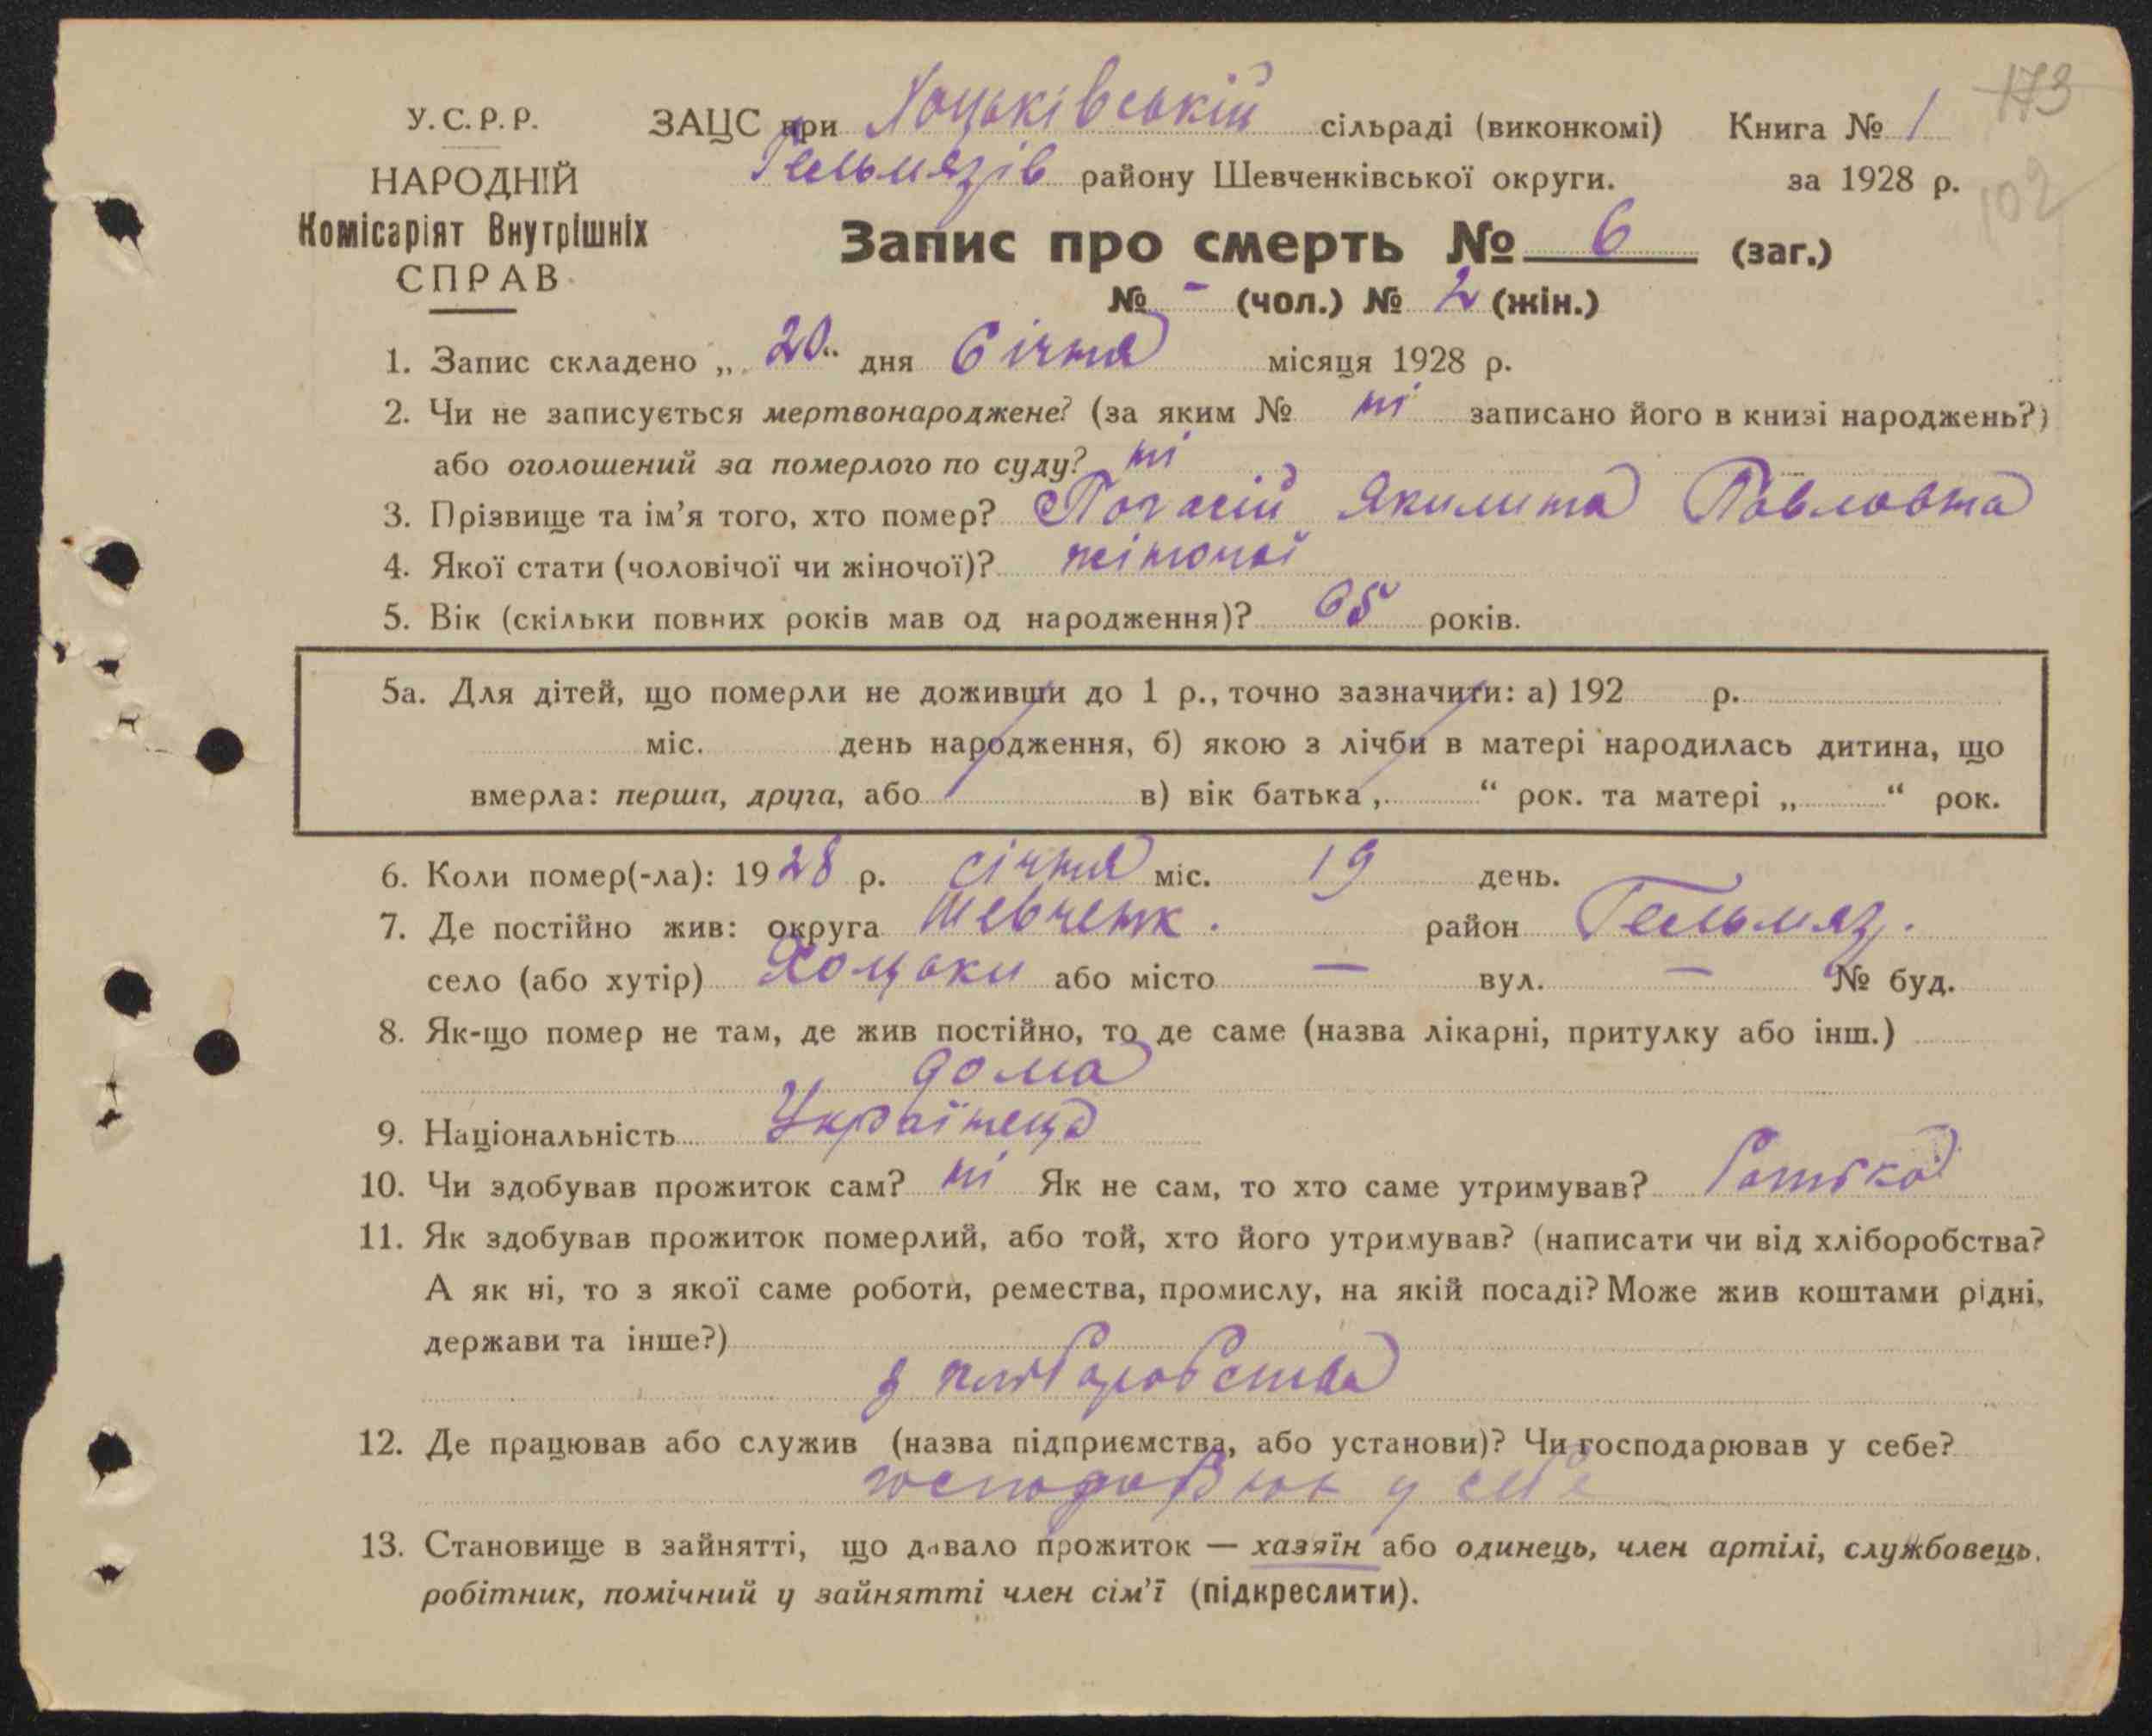 173
102
У.С.Р.Р.
НАРОДНІЙ
Комісаріят Внутрішніх
СПРАВ
ЗАЦС при Хоцьківській сільраді (виконкомі) Книга № 1
Гельмязів району Шевченківської округи. за 1928 р.
Запис про смерть № 6 (заг.)
№ - (чол.) № 2 (жін.)
1. Запис складено „ 20 “ дня Січня місяця 1928 р.
2. Чи не записується мертвонароджене? (за яким № ні записано його в книзі народжень?)
або оголошений за померлого по суду? ні
3. Прізвище та ім’я того, хто помер? Якилина Павловна
4. Якої стати (чоловічої чи жіночої)? жіночої
5. Вік (скільки повних років мав од народження)? 65 років.
5а. Для дітей, що померли не доживши до 1 р., точно зазначити: а) 192 р.
міс. день народження, б) якою з лічби в матері народилась дитина, що
вмерла: перша, друга, або в) вік батька „ “ рок. та матері „ “ рок.
6. Коли помер(-ла): 1928 р. січня міс. 19 день.
7. Де постійно жив: округа Шевченк. район Гельмяз.
село (або хутір) Хоцьки або місто — вул. — № буд.
8. Як-що помер не там, де жив постійно, то де саме (назва лікарні, притулку або інш.)
дома
9. Національність Українець
10. Чи здобував прожиток сам? ні Як не сам, то хто саме утримував?
11. Як здобував прожиток померлий, або той, хто його утримував? (написати чи від хліборобства?
А як ні, то з якої саме роботи, ремества, промислу, на якій посаді? Може жив коштами рідні,
держави та інше?)
з хліборобства
12. Де працював або служив (назва підприємства, або установи)? Чи господарював у себе?
у себе
13. Становище в зайнятті, що давало прожиток — хазяїн або одинець, член артілі, службовець,
робітник, помічний у зайнятті член сім’ї (підкреслити).